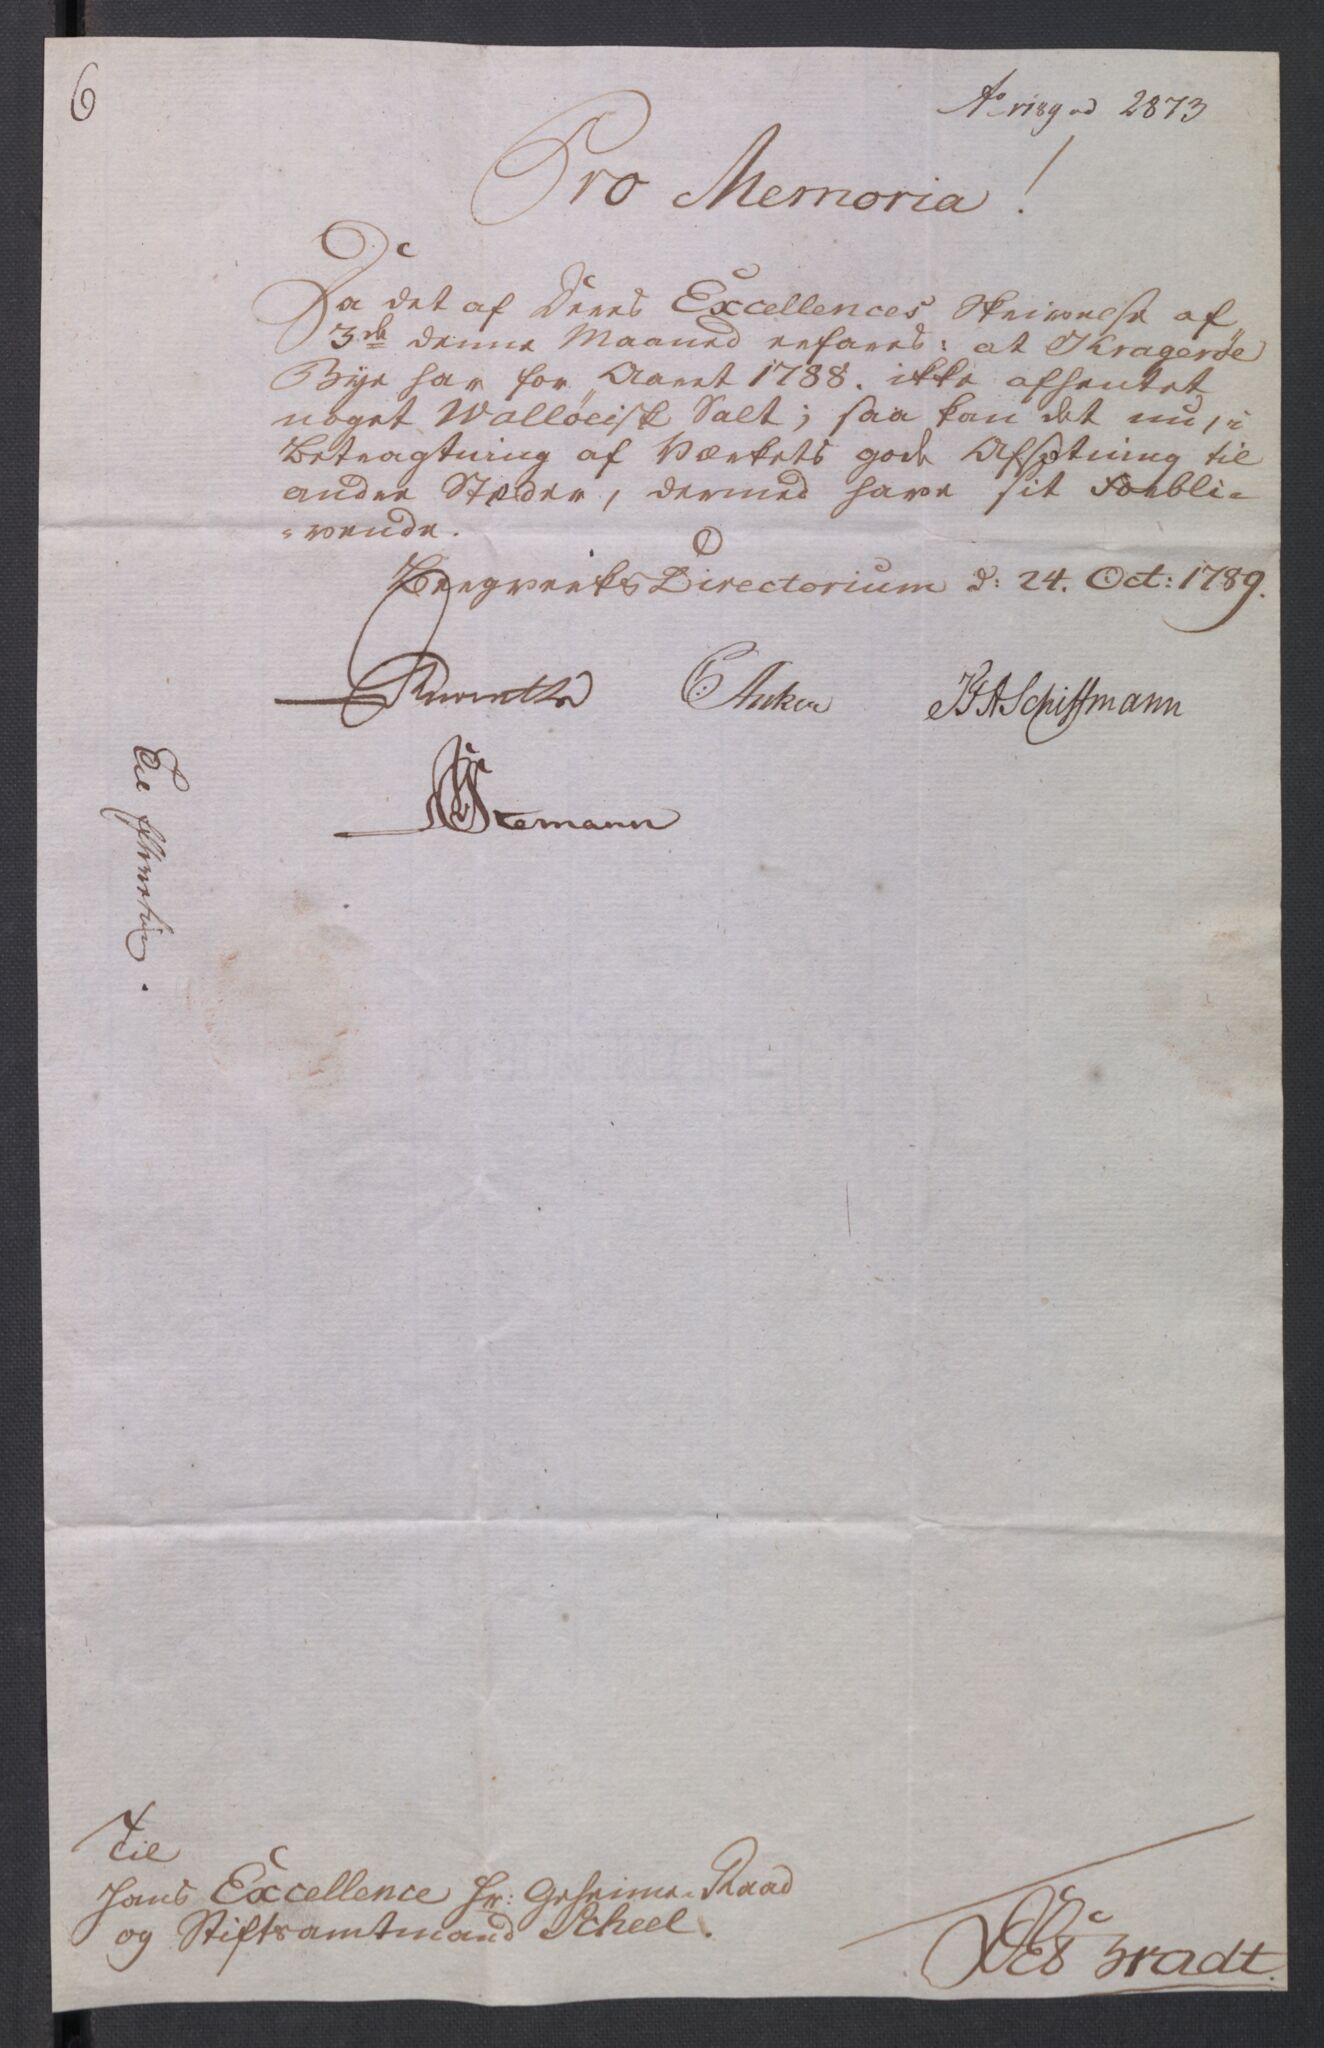 6
Ao 1789 ad 2873
Pro Memoria!
Da det af Deres Excellences Skrivelse af
3de denne Maaned erfares: at Kragerøe
Bye har for Aaret 1788. ikke afhentet
noget Walløeisk Salt; saa kan det nu, i
Betragtning af Værkets gode Afsætning til
andre Stæder, dermed have sit Forbli-
-vende.
BergverksDirectorium d: 24. Oct: 1789.
C: Anker JFASchiffmann
Stemann
Til
Hans Excellence Hr: Geheime-Raad
og Stiftsamtmand Scheel.
Bradt.